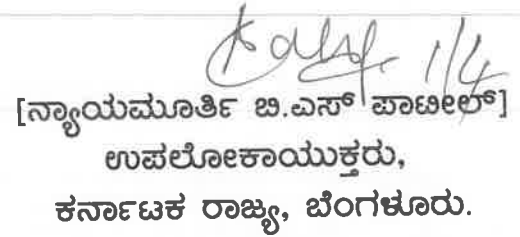 1/4
[ನ್ಯಾಯಮೂರ್ತಿ ಬಿ.ಎಸ್ ಪಾಟೀಲ್]
ಉಪಲೋಕಾಯುಕ್ತರು,
ಕರ್ನಾಟಕ ರಾಜ್ಯ, ಬೆಂಗಳೂರು.